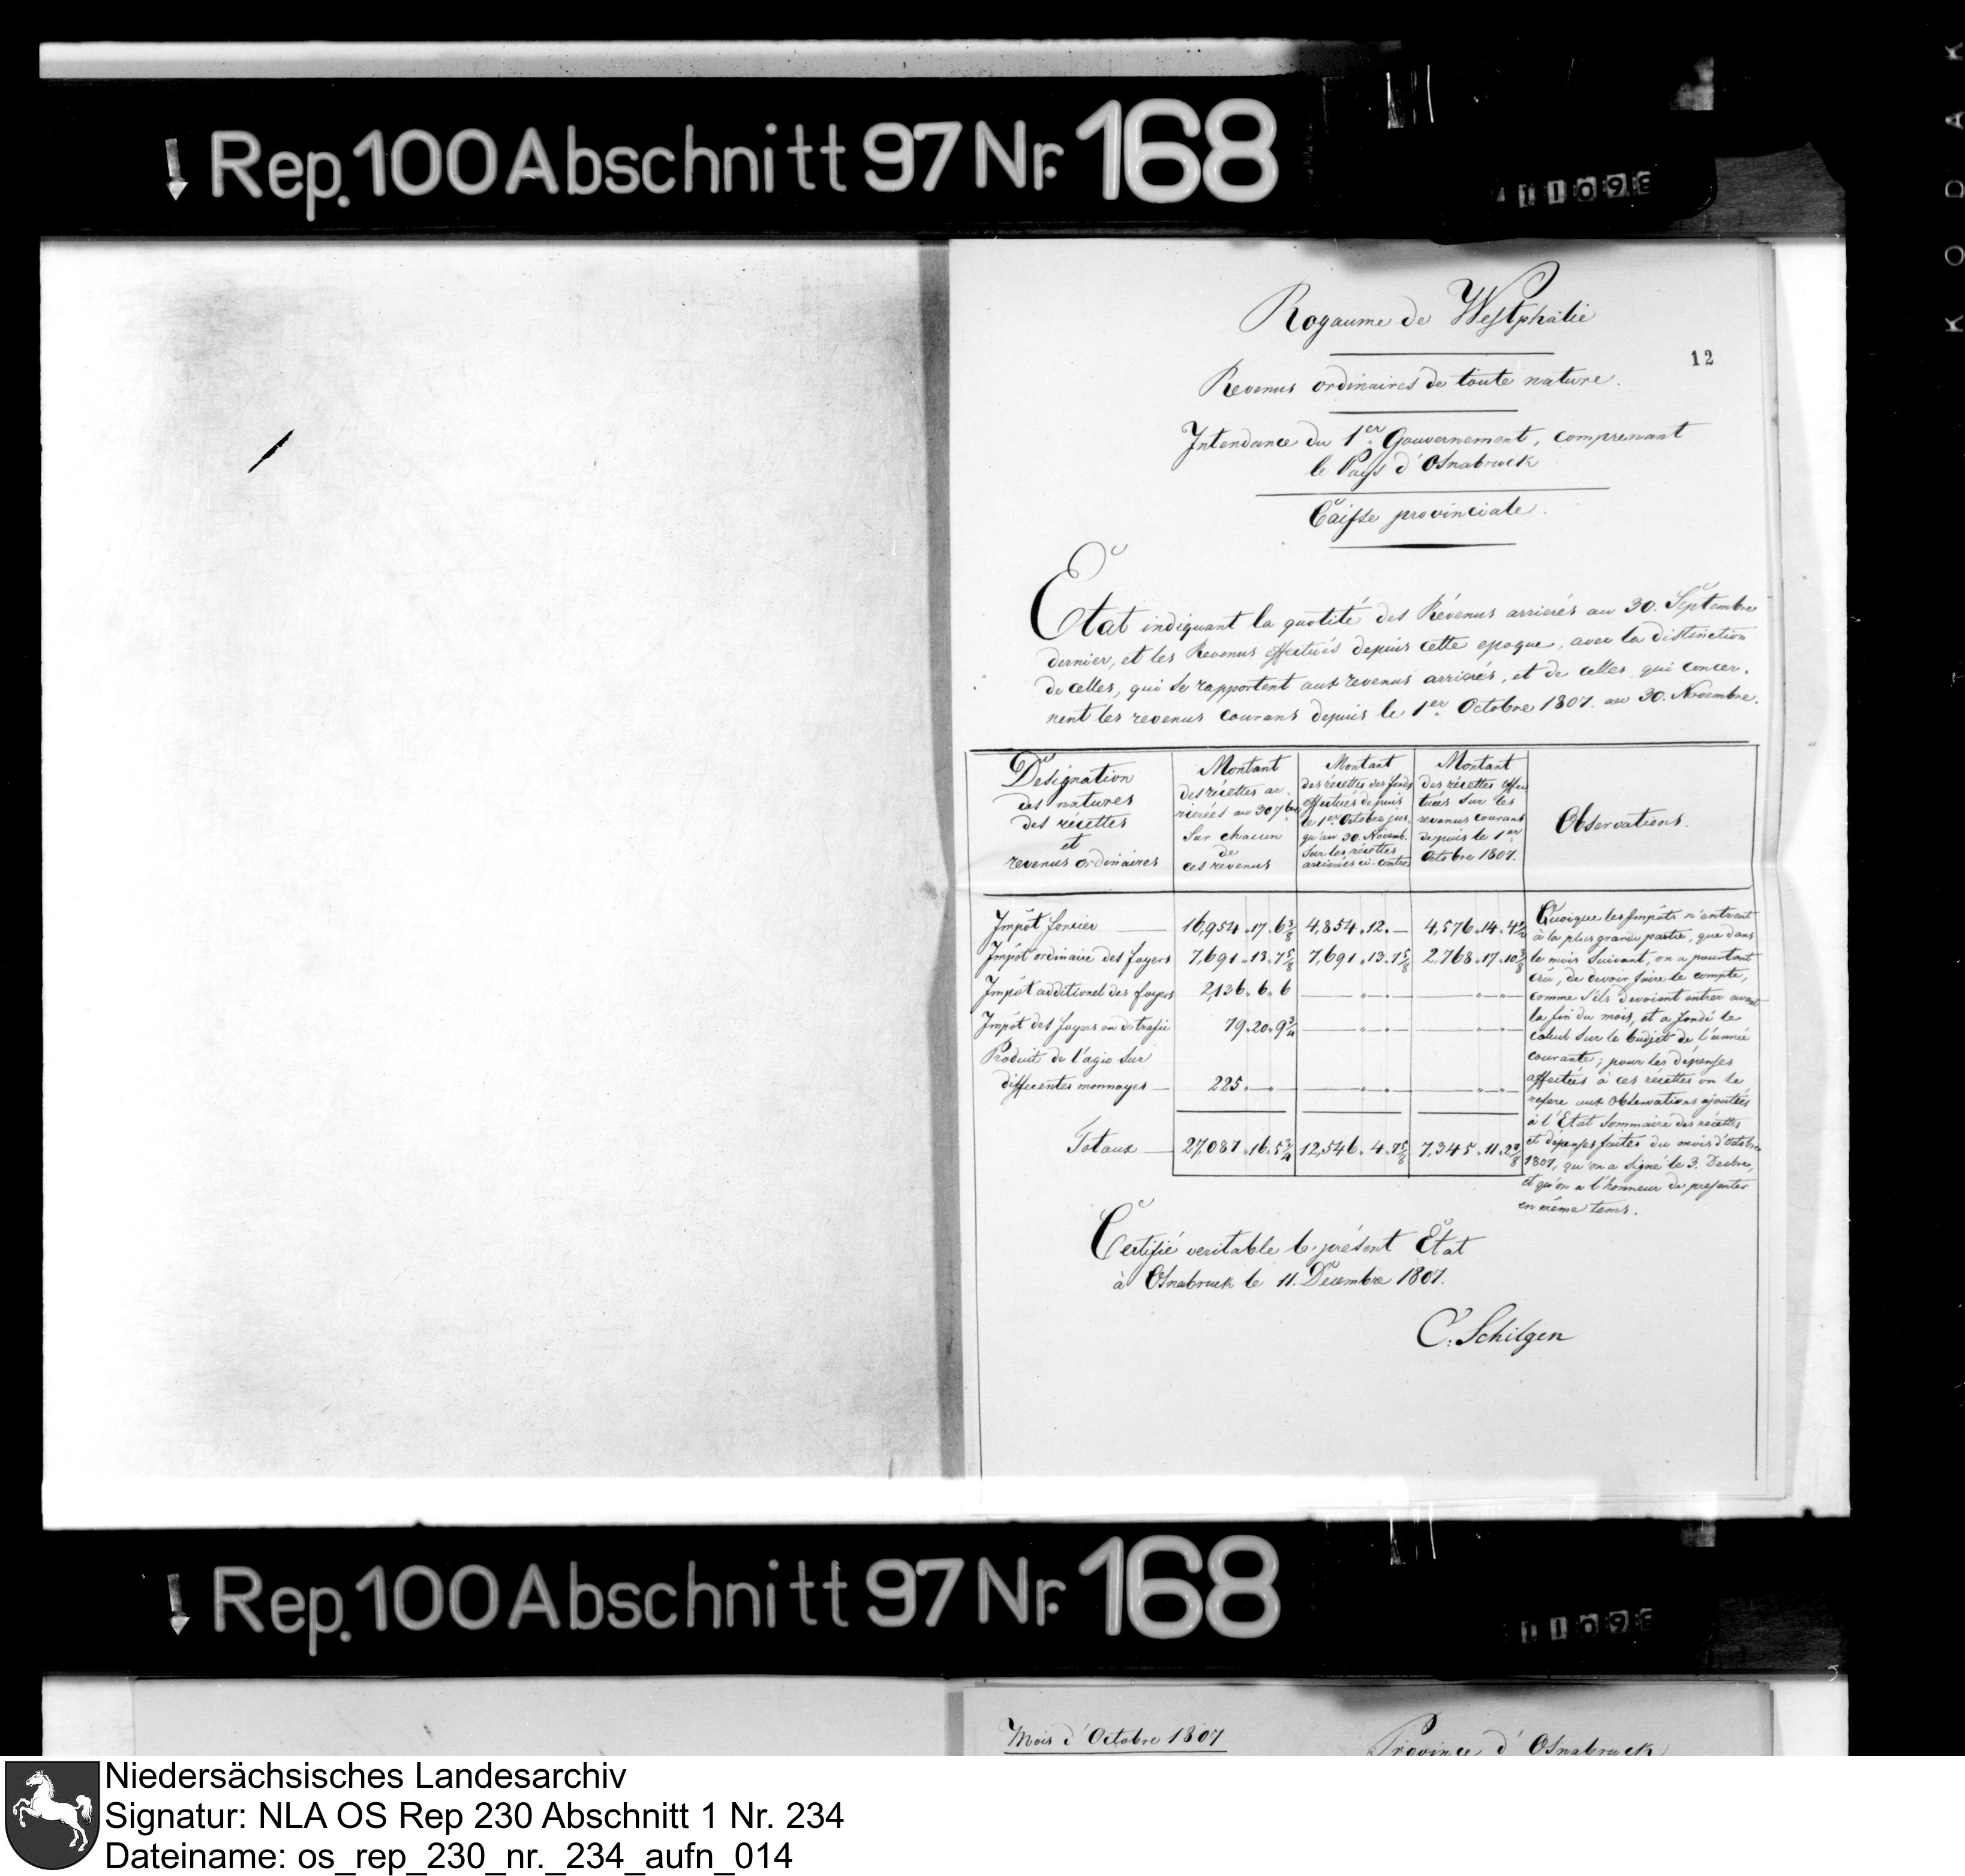 KODAK
↓ Rep. 100 Abschnitt 97 Nr. 168
11098
Royaume de Westphalie
12
Revenus ordinaires de toute nature.
Intendance du 1er Gouvernement, comprenant
le Pays d'Osnabruck
Caisse provinciale.
Etat indiquant la quotité des Révenus arrierés au 30. Septembre
dernier, et les Revenus effectués depuis cette epoque, avec la distinction
de celles, qui se rapportent aux revenus arrierés, et de celles, qui concer-
nent les revenus courans depuis le 1er Octobre 1807. au 30. Novembre.
Designation
des natures
des récettes
et
revenus ordinaires
Montant
des récettes ar-
rierées au 30 7bre
sur chacun
de
ces revenus
Montant
des récettes des fonds
effectués depuis
le 1er Octobre jus-
qu'au 30. Novemb.
sur les récettes
arrierées ci-contre
Montant
des récettes effec
tuées sur les
revenus courans
depuis le 1er
Octobre 1807.
Observations.
Impôt foncier 16,954.17.6 3/8 4,854.12.— 4,576.14.4 1/2
Impôt ordinaire des foyers 7,691.13.7 5/8 7,691.13.7 5/8 2,768.17.10 3/8
Impôt additionel des foyers 2,136.6.6
Impôt des foyers ou de trafic 79.20.9 3/4
Produit de l'agio sur
differentes monnoyes 225.
Totaux 27,087.16.5 3/4 12,546.4.7 5/8 7,345.11.2 7/8
Quoique les Impôts n'entrent
à la plus grande partie, que dans
le mois suivant, on a pourtant
crû, de devoir faire le compte,
comme s'ils devoient entrer avant
la fin du mois, et a fondé le
calcul sur le budjet de l'année
courante; pour les dépenses
affectées à ces récettes on se
refere aux Observations ajoutées
à l'Etat Sommaire des récettes
et dépenses faites du mois d'Octobre
1807, qu'on a signé le 3. Decbre,
et qu'on a l'honneur de presenter
en même tems.
Certifié veritable le présent Etat
à Osnabruck le 11. Décembre 1807.
C. Schilgen
↓ Rep. 100 Abschnitt 97 Nr. 168
11098
Mois d'Octobre 1807
Province d'Osnabruck
Niedersächsisches Landesarchiv
Signatur: NLA OS Rep 230 Abschnitt 1 Nr. 234
Dateiname: os_rep_230_nr._234_aufn_014